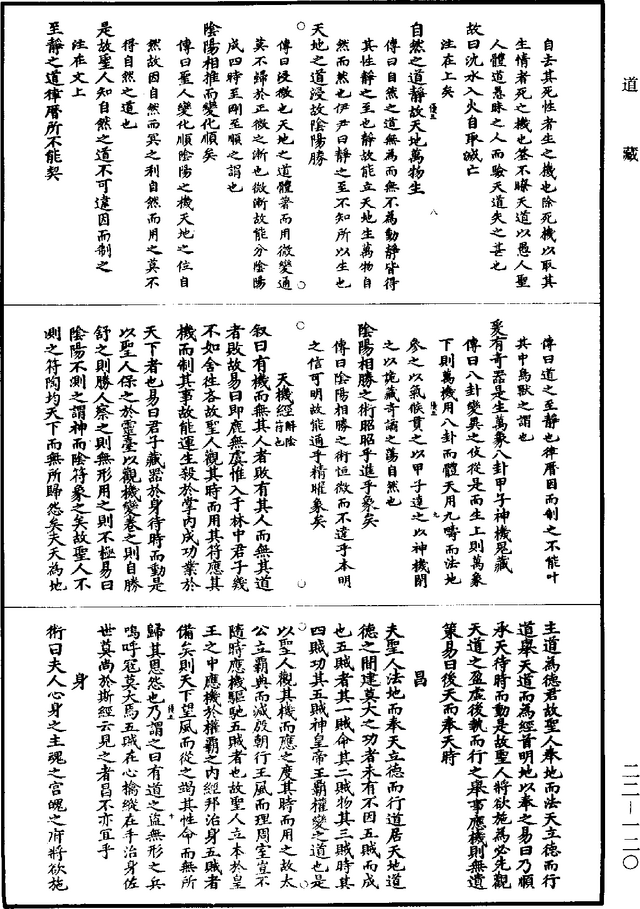 道藏
自去其死性者生之機也除死機以取其
生情者死之機也筌不瞭天道以愚人聖
人體道愚昧之人而驗天道失之甚也
故曰沈水入火自取滅亡
注在上矣
自然之道靜故天地萬物生
傳曰自然之道無為而無不為動靜皆得
其性靜之至也靜故能立天地生萬物自
然而然也伊尹曰靜之至不知所以生也
天地之道浸故陰陽勝
傳曰浸微也天地之道體著而用微變通
莫不歸於正微之漸也微漸故能分陰陽
成四時至剛至順之謂也
陰陽相推而變化順矣
傳曰聖人變化順陰陽之機天地之位自
然故因自然而冥之利自然而用之莫不
得自然之道也
是故聖人知自然之道不可違因而制之
注在文上
至靜之道律曆所不能契
傳曰道之至靜也律曆因而制之不能叶
其中鳥獸之謂也
爰有奇器是生萬象八卦甲子神機鬼藏
傳曰八卦變異之伎從是而生上則萬象
下則萬機用八卦而體天用九疇而法地
參之以氣候貫之以甲子達之以神機閉
之以詭藏奇譎之蕩自然也
陰陽相勝之術昭昭乎進乎象矣
傳曰陰陽相勝之術恒微而不違乎本明
之信可明故能通乎精曜象矣
天機經解陰符也
叙曰有機而無其人者敗有其人而無其道
者敗故易曰即鹿無虞惟入于林中君子幾
不如舍往吝故聖人觀其時而用其符應其
機而制其事故能運生殺於掌內成功業於
天下者也易曰君子藏器於身待時而動是
以聖人保之於靈臺以觀機變卷之則自勝
舒之則勝人察之則無形用之則不極易曰
陰陽不測之謂神而陰符象之矣故聖人不
測之符陶均天下而無所歸怨矣夫天為地
主道為德君故聖人奉地而法天立德而行
道舉天道而為經首明地以奉之易曰乃順
承天待時而動是故聖人將欲施為必先觀
天道之盈虛後執而行之舉事應機則無遺
策易曰後天而奉天時
昌
夫聖人法地而奉天立德而行道居天地道
德之間建莫大之功者未有不因五賊而成
也五賊者其一賊命其二賊物其三賊時其
四賊功其五賊神皇帝王霸權變之道也是
以聖人觀其機而應之度其時而用之故太
公立霸典而滅殷朝行王風而理周室豈不
隨時應機驅馳五賊者也故聖人立本於皇
王之中應機於權霸之內經邦治身五賊者
備矣則天下望風而從之竭其性命而無所
歸其恩怨也乃謂之曰有道之盜無形之兵
嗚呼冦莫大焉五賊在心擒縱在手治身佐
世莫尚於斯經云見之者昌不亦宜乎
身
術曰夫人心身之主魂之宮魄之府將欲施
二—一二〇